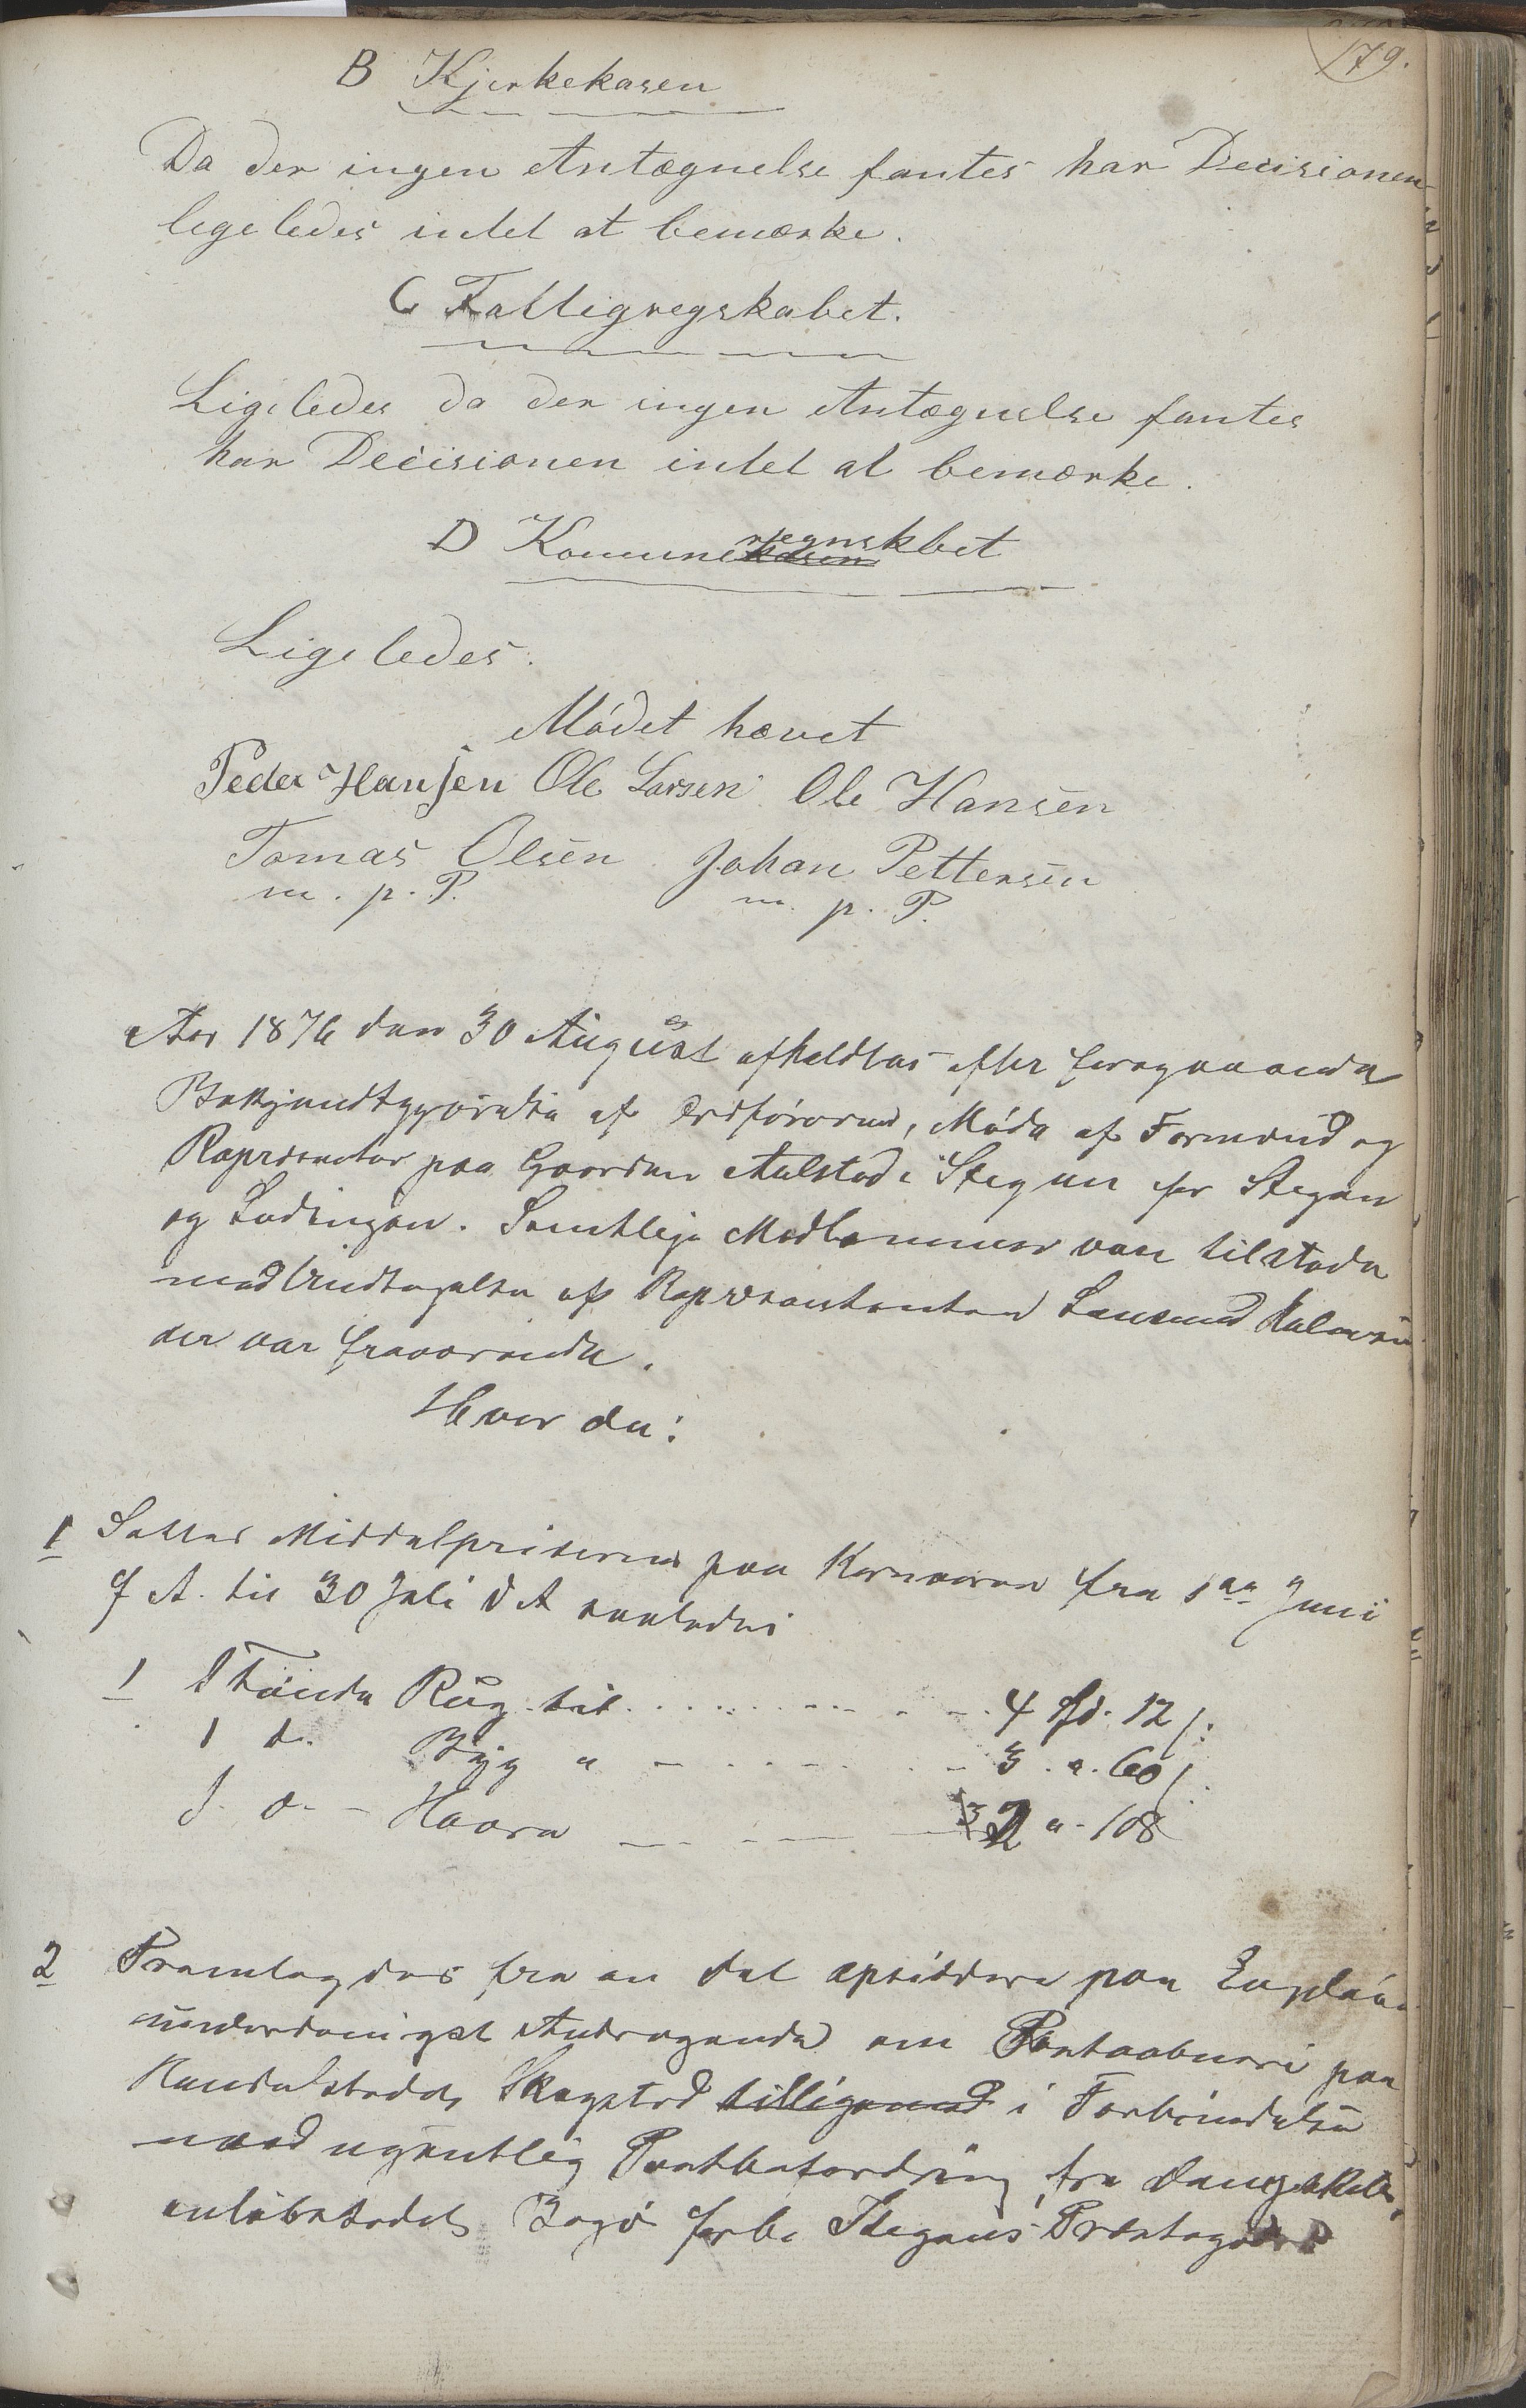 179.
B Kjerkekasen
Da der ingen Antægnelse fantes har Decisionen
legeledes intet at bemærke.
C Fattigregskabet.
Ligeledes da der ingen Antægnelse fantes
har Decisionen intet at bemærke.
D Komunekasen regnskbet
Ligeledes.
Mödet hævet
Peder Hansen Ole Larsen Ole Hansen
Tomas Olsen Johan Pettersen
m. p. P. m. p. P.
Aar 1876 den 30 August afholdtes efter foregaaende
Bekjendtgjörelse af Ordföreren, Möde af Formend og
Represnter paa Gaarden Aalstad i Stegen for Stegen
og Lödingen. Samtlige Medlemmer vare tilstede
med Undtagelse af Represæntanten
der var fraværende.
Hvor da:
1 Sattes Middelpriserne paa Kornvarer fra 1ste Juni
f A. til 30 Juli d A saaledes
1 1 Tönde Rug til 4 Spd. 12 /:
1 d. Byg " 3 . " . 60 /.
1 d. - Havre 2 " - 108
2 Fremlagdes fra en del opsiddere paa Engelöen
underdanigst Andragende om Postaabneri paa
Handelstedet Skagstad tilligemed i Forbindelse
med ugentlig Postbefordring fra Dampskibs
anlöbstedet Bogö forbi Stegens Præstegaard